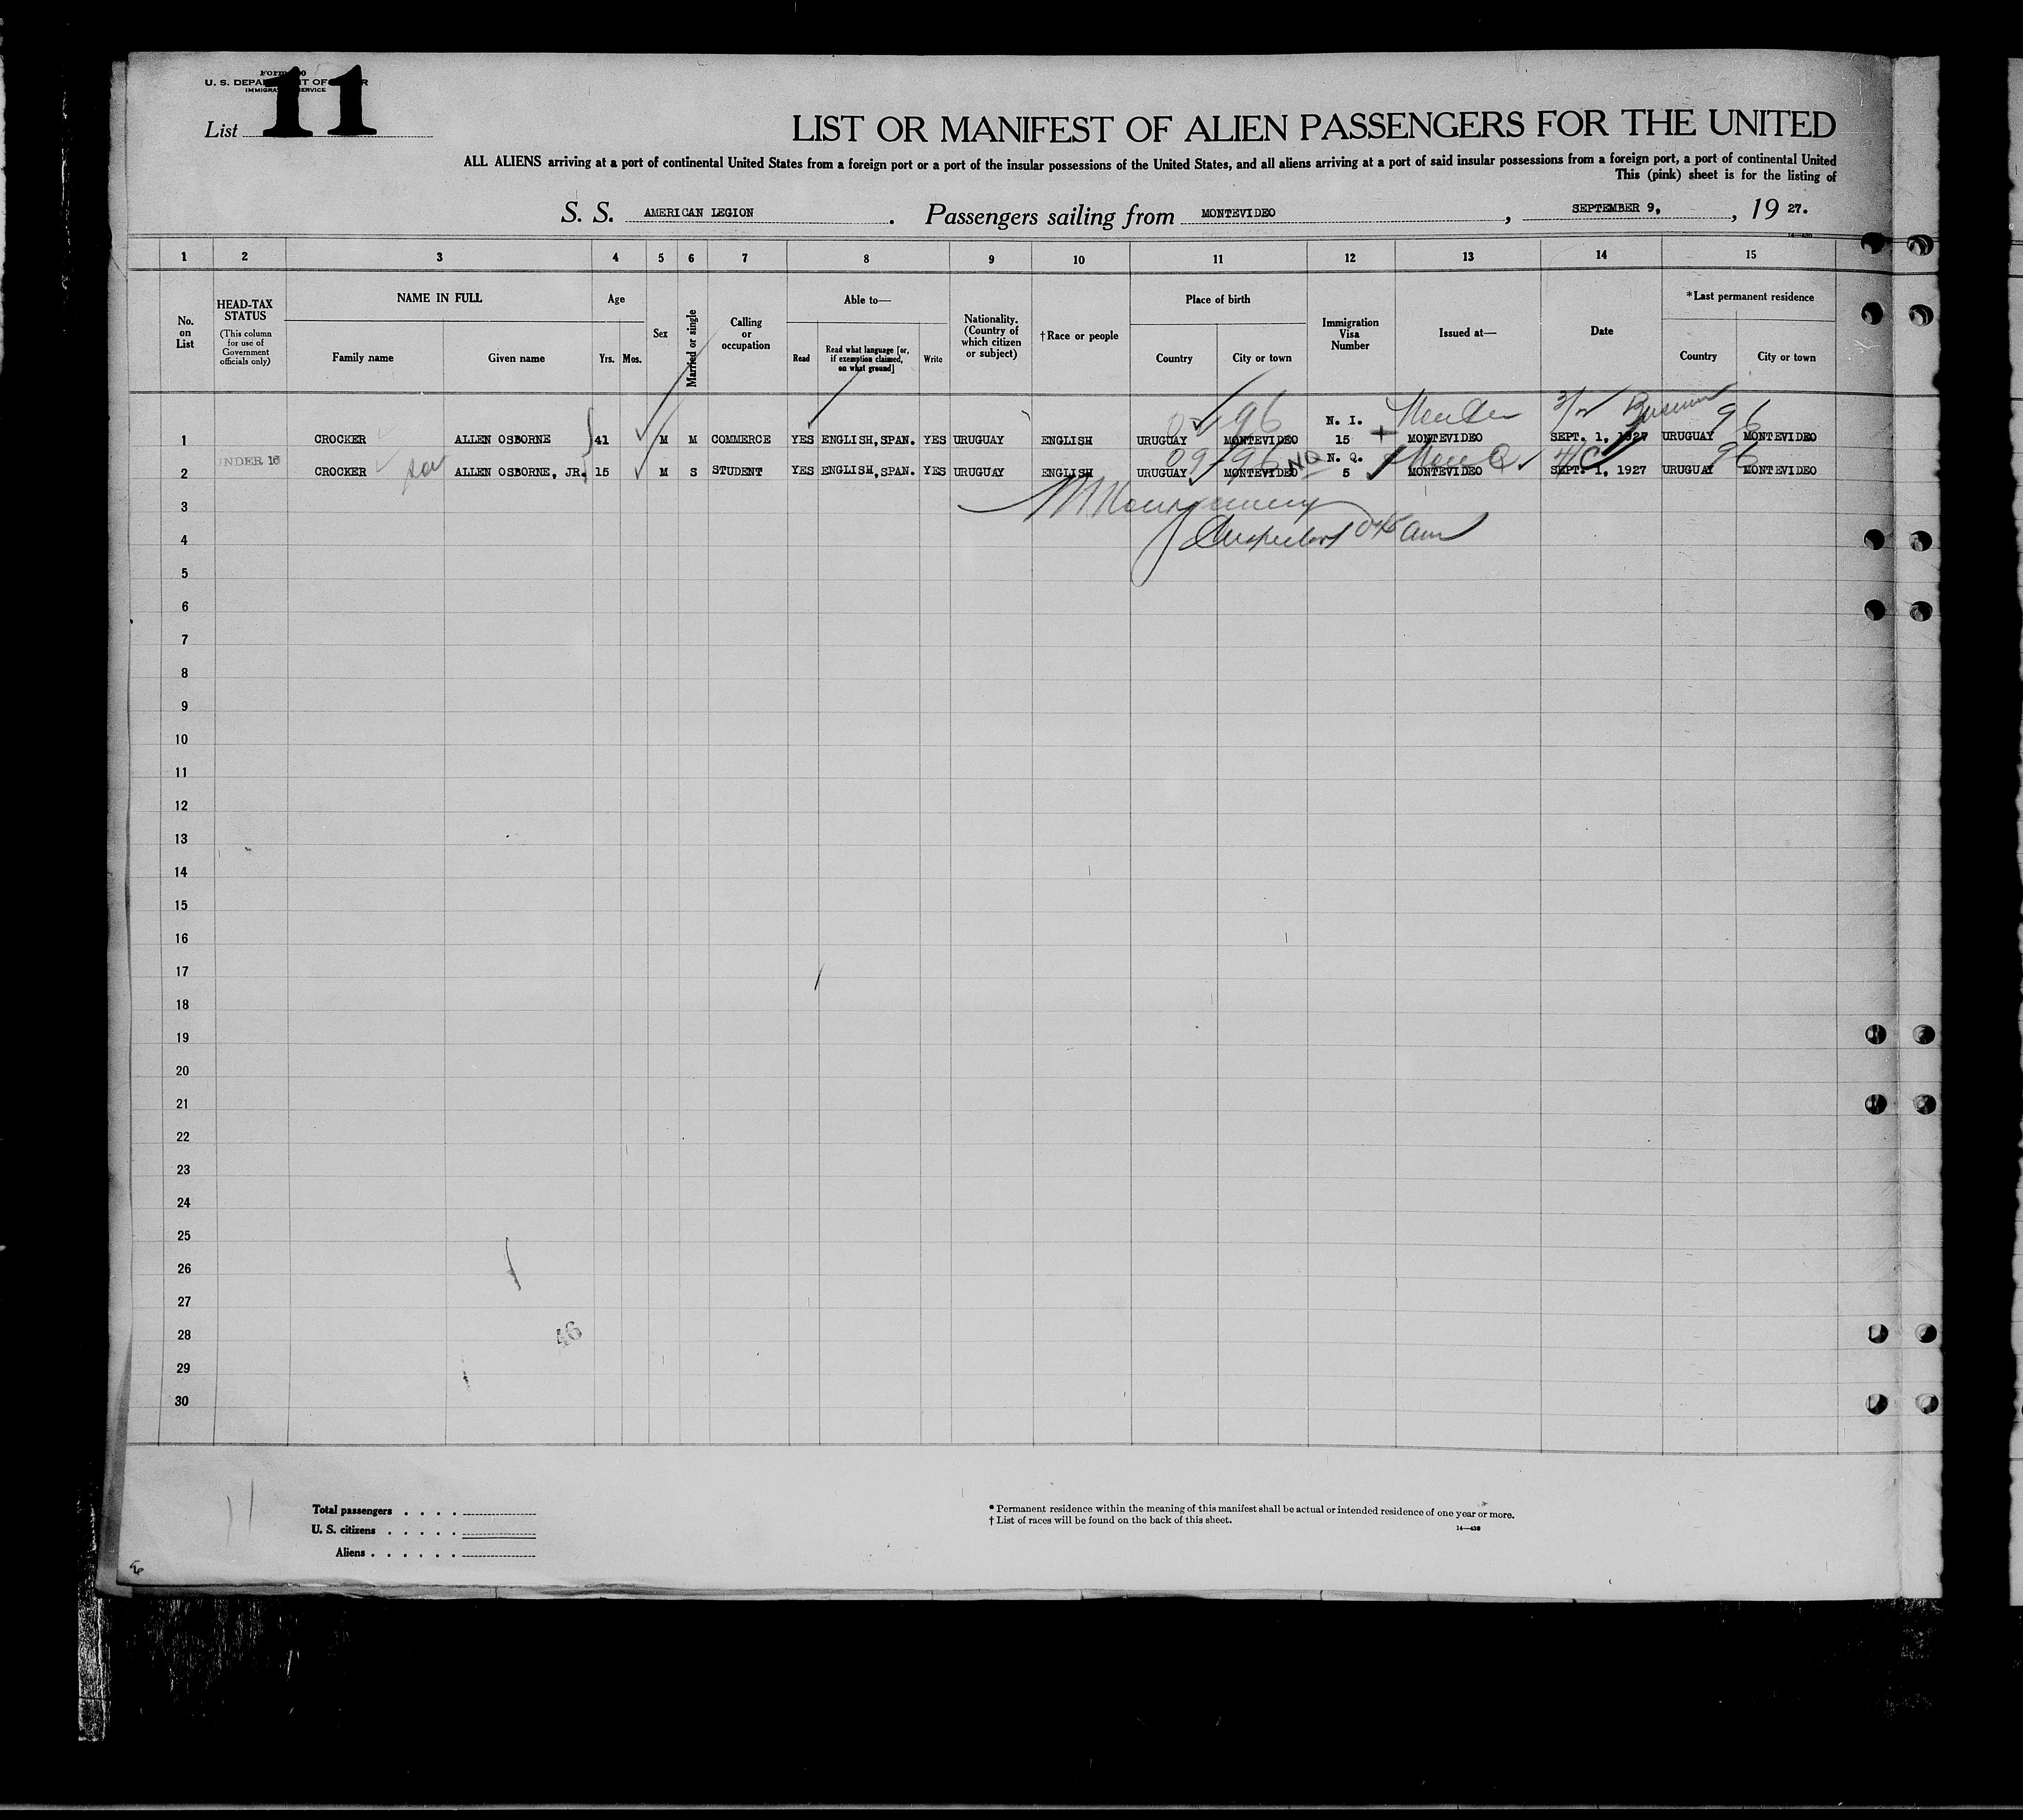 Form 500
U. S. DEPARTMENT OF LABOR
IMMIGRATION SERVICE
List 11
LIST OR MANIFEST OF ALIEN PASSENGERS FOR THE UNITED
ALL ALIENS arriving at a port of continental United States from a foreign port or a port of the insular possessions of the United States, and all aliens arriving at a port of said insular possessions from a foreign port, a port of continental United
This (pink) sheet is for the listing of
S. S. AMERICAN LEGION . Passengers sailing from MONTEVIDEO , SEPTEMBER 9, , 19 27.
1 2 3 4 5 6 7 8 9 10 11 12 13 14 15
No. on List
HEAD-TAX STATUS
(This column for use of Government officials only)
NAME IN FULL
Family name Given name
Age
Yrs. Mos.
Sex
Married or single
Calling or occupation
Able to—
Read
Read what language [or, if exemption claimed, on what ground]
Write
Nationality. (Country of which citizen or subject)
†Race or people
Place of birth
Country City or town
Immigration Visa Number
Issued at—
Date
*Last permanent residence
Country City or town
1 CROCKER ALLEN OSBORNE 41 M M COMMERCE YES ENGLISH, SPAN. YES URUGUAY ENGLISH URUGUAY MONTEVIDEO N. I. 15 MONTEVIDEO SEPT. 1, 1927 URUGUAY MONTEVIDEO
96 96
UNDER 16
2 CROCKER son ALLEN OSBORNE, JR. 15 M S STUDENT YES ENGLISH, SPAN. YES URUGUAY ENGLISH URUGUAY MONTEVIDEO N. Q. 5 MONTEVIDEO SEPT. 1, 1927 URUGUAY MONTEVIDEO
09 96 NQ 96
3 Montgomery
4 Inspector
5
6
7
8
9
10
11
12
13
14
15
16
17
18
19
20
21
22
23
24
25
26
27
28
46
29
30
11
Total passengers . . . .
U. S. citizens . . . . .
Aliens . . . . . .
* Permanent residence within the meaning of this manifest shall be actual or intended residence of one year or more.
† List of races will be found on the back of this sheet.
14—430